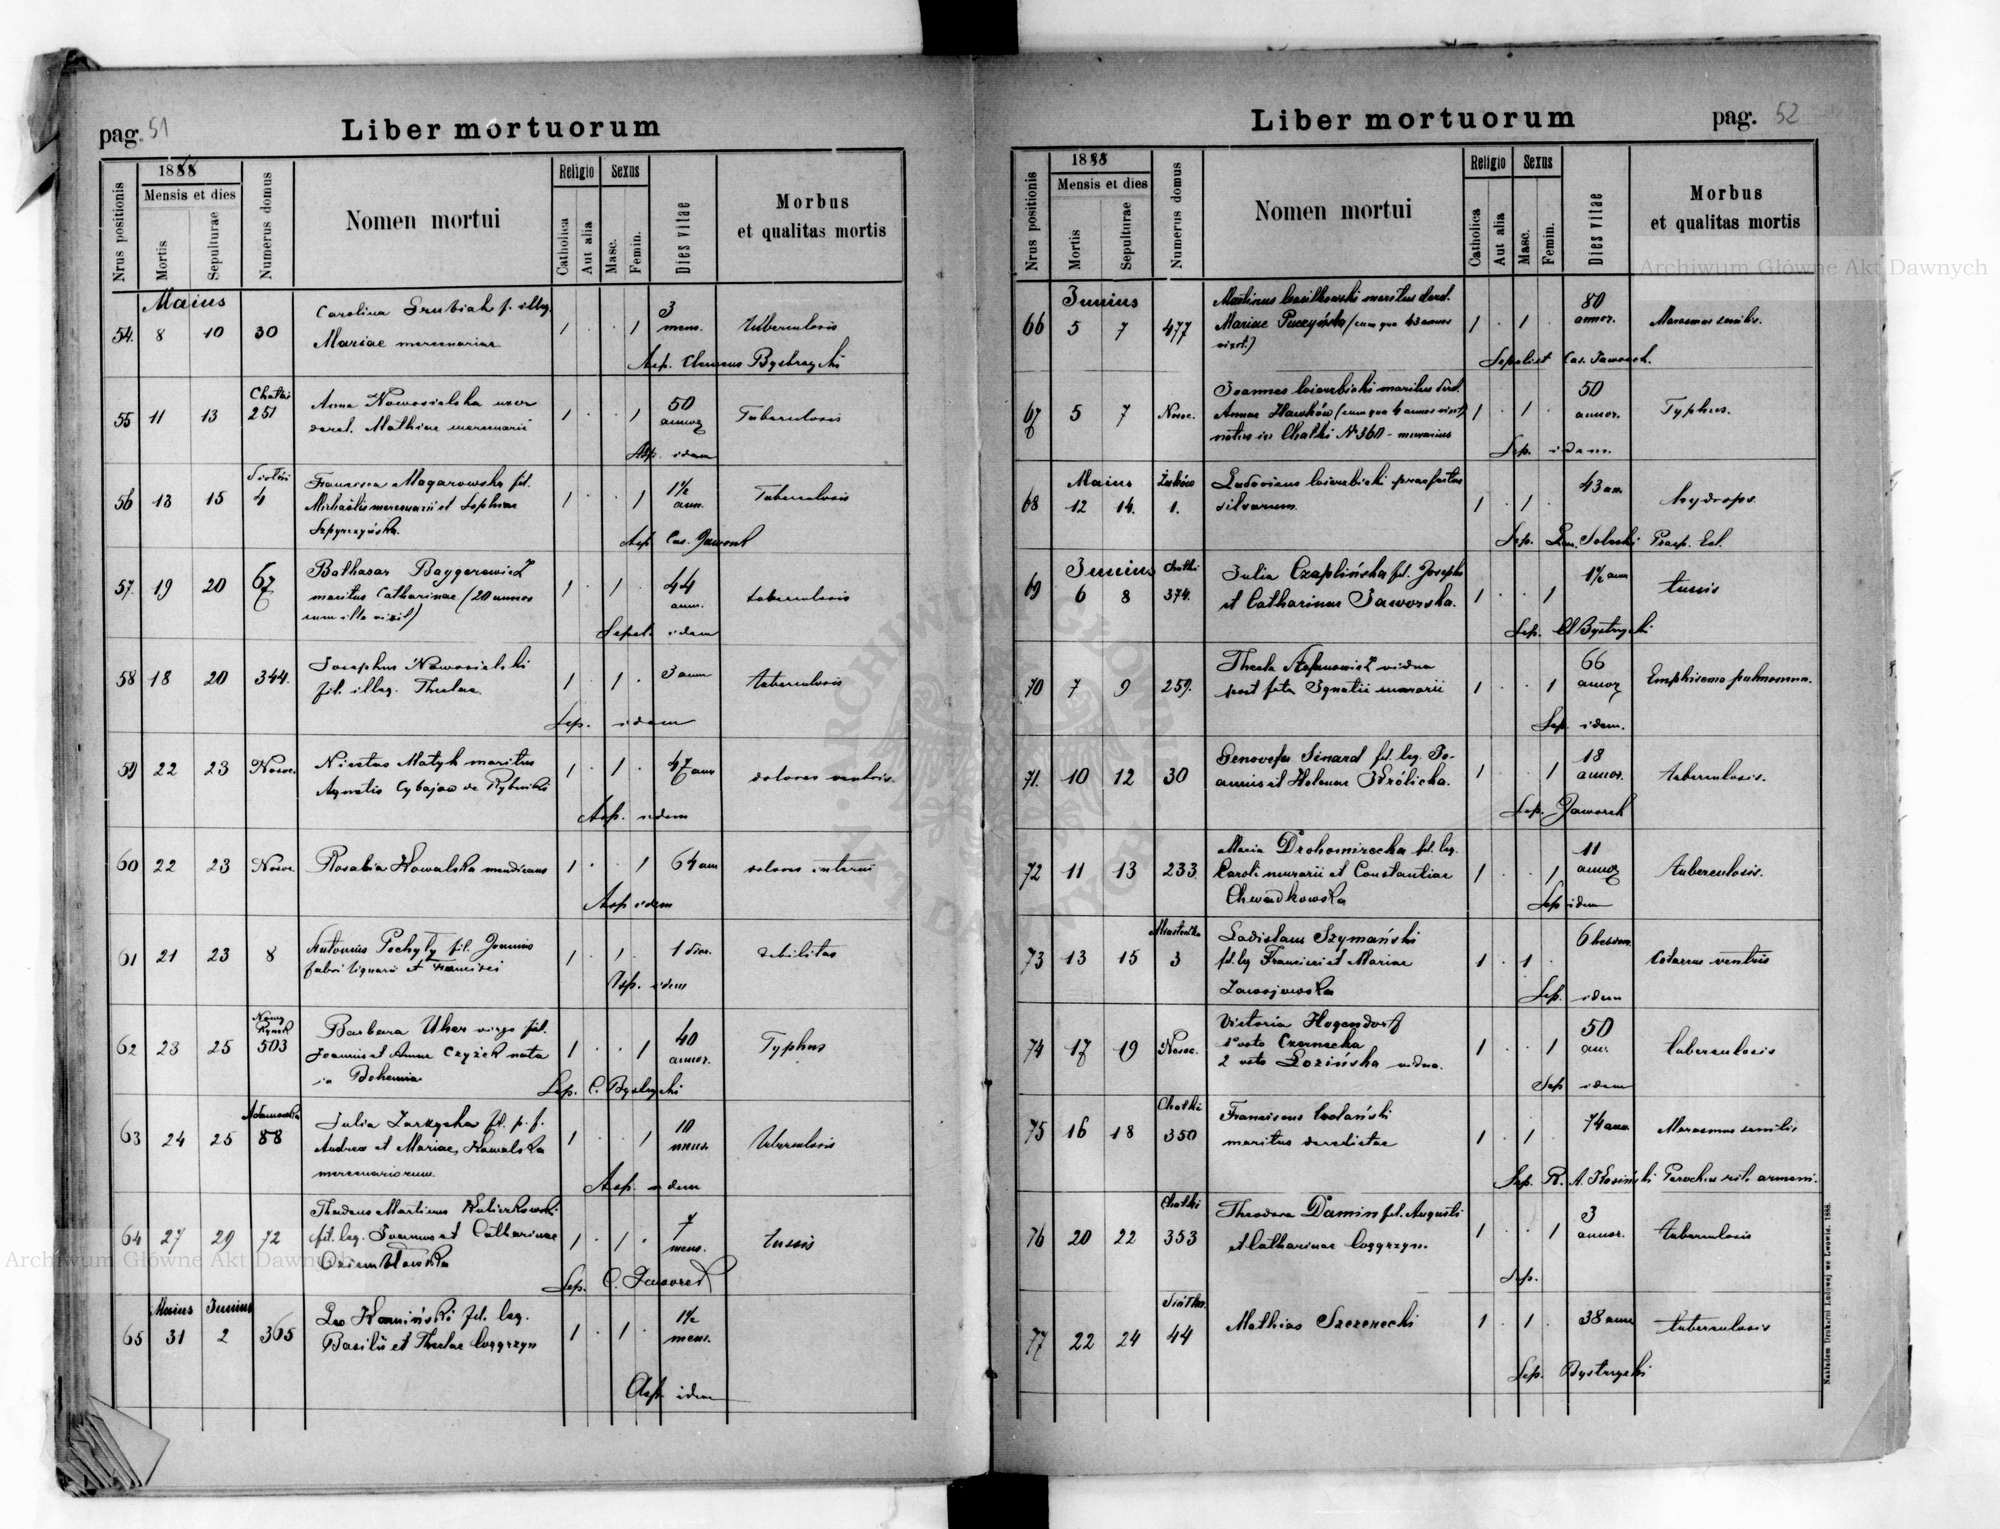 pag. 51
Liber mortuorum
Nrus positionis
1888
Mensis et dies
Mortis
Sepulturae
Numerus domus
Nomen mortui
Religio
Catholica
Aut alia
Sexus
Masc.
Femin.
Dies vitae
Morbus
et qualitas mortis
Maius
54. 8 10 30 Carolina f. illeg. 1 . . 1 3 mens. tuberculosis
Mariae mercenariae
Clemens Bystrzycki
55 11 13 251 Anna Nowosielska uxor 1 . . 1 50 annor Tuberculosis
derel. Mathiae mercenarii
idem
56 13 15 4 Francisca Magarowska fil. 1 . . 1 1½ ann. Tuberculosis
Michaelis mercenarii et Sophiae
Cas. Jaworek
57. 19 20 67 Balthasar 1 . 1 . 44 ann. tuberculosis
maritus Catharinae (20 annos
cum illa vixit)
Sepel. idem
58 18 20 344. Josephus Nowosielski 1 . 1 . 3 ann tuberculosis
fil. illeg. Theclae
Sep. idem
59 22 23 Nosoc. Nicetas Matyk maritus 1 . 1 . 47 ann dolores ventris.
Agnetis
idem
60 22 23 Nosoc. Rosalia Kowalska mendicans 1 . . 1 64 ann dolores interni
idem
61 21 23 8 Antonius Pochyły fil. Joannis 1 . 1 . 1 dies. debilitas
fabri lignarii et
idem
Nowy
Rynek
62 23 25 503 Barbara Uher virgo fil. 1 . . 1 40 annor. Typhus
Joannis et Annae Czyżek nata
in Bohemia
Sep. C. Bystrzycki
Adamówka
63 24 25 88 Julia Zarzycka fil. p. f. 1 . . 1 10 mens. tuberculosis
Andrea et Mariae, Kowalska
mercenariorum.
idem
64 27 29 72 Thadeus Martinus 1 . 1 . 7 mens. tussis
fil. leg. Joannis et Catharinae
Sep. C. Jaworek
Maius Junius
65 31 2 365 Leo Kamiński fil. leg. 1 . 1 . 1½ mens.
Basilii et Theclae
idem
Liber mortuorum
pag. 52
Nrus positionis
1888
Mensis et dies
Mortis
Sepulturae
Numerus domus
Nomen mortui
Religio
Catholica
Aut alia
Sexus
Masc.
Femin.
Dies vitae
Morbus
et qualitas mortis
Junius
66 5 7 477 Martinus Wasilkowski maritus derel. 1 . 1 . 80 annor. Marasmus senilis.
Mariae Puczyńska (cum qua 43 annos
vixit.)
Sepelivit Cas. Jaworek.
67 5 7 Nosoc. Joannes Wierzbicki maritus derel. 1 . 1 . 50 annor. Typhus.
Annae Hawków (cum qua 4 annos vixit)
natus in Chatki № 360 - murarius
Sep. idem.
Maius
68 12 14. 1. Ludovicus Wierzbicki praefectus 1 . 1 . 43 ann. hydrops.
silvarum.
Sep. Prasp. Ecl.
Junius Chatki
69 6 8 374. Julia Czaplińska fil. Josephi 1 . . 1 1½ ann tussis
et Catharinae Jaworska.
Sep. Cl Bystrzycki
70 7 9 259. Thecla Stefanowicz vidua 1 . . 1 66 annor Emphisema pulmonum.
post fata Ignatii murarii
Sep. idem.
71. 10 12 30 Genovefa Sinard fil. leg. Jo- 1 . . 1 18 annor. tuberculosis.
annis et Helenae Królicka.
Sep. Jaworek
72 11 13 233. Maria Drohomirecka fil. leg. 1 . . 1 11 annor tuberculosis.
Caroli murarii et Constantiae
Chwedkowska
Sep idem
73 13 15 3 Ladislaus Szymański 1 . 1 . 6 hebdom. Catarrus ventris
fil. leg Francisci et Mariae
Sep. idem
74 17 19 Nosoc. Victoria Hogendorf 1 . . 1 50 an. tuberculosis
1° voto Czernecka
2 voto Łozińska vidua.
Sep idem
Chatki
75 16 18 350 Franciscus Wolański 1 . 1 . 74 ann. Marasmus senilis.
maritus derelictae
Sep. R. A. Kosiński Parochus rit. armeni.
Chatki
76 20 22 353 Theodora Damin fil. Augusti 1 . . 1 3 annor. tuberculosis
et Catharinae
Sep.
77 22 24 44 Mathias Szczerecki 1 . 1 . 38 ann tuberculosis
Sep. Bystrzycki
Nakładem Drukarni Ludowej we Lwowie. 1888.
Archiwum Główne Akt Dawnych
Archiwum Główne Akt Dawnych
ARCHIWUM GŁÓWNE AKT DAWNYCH